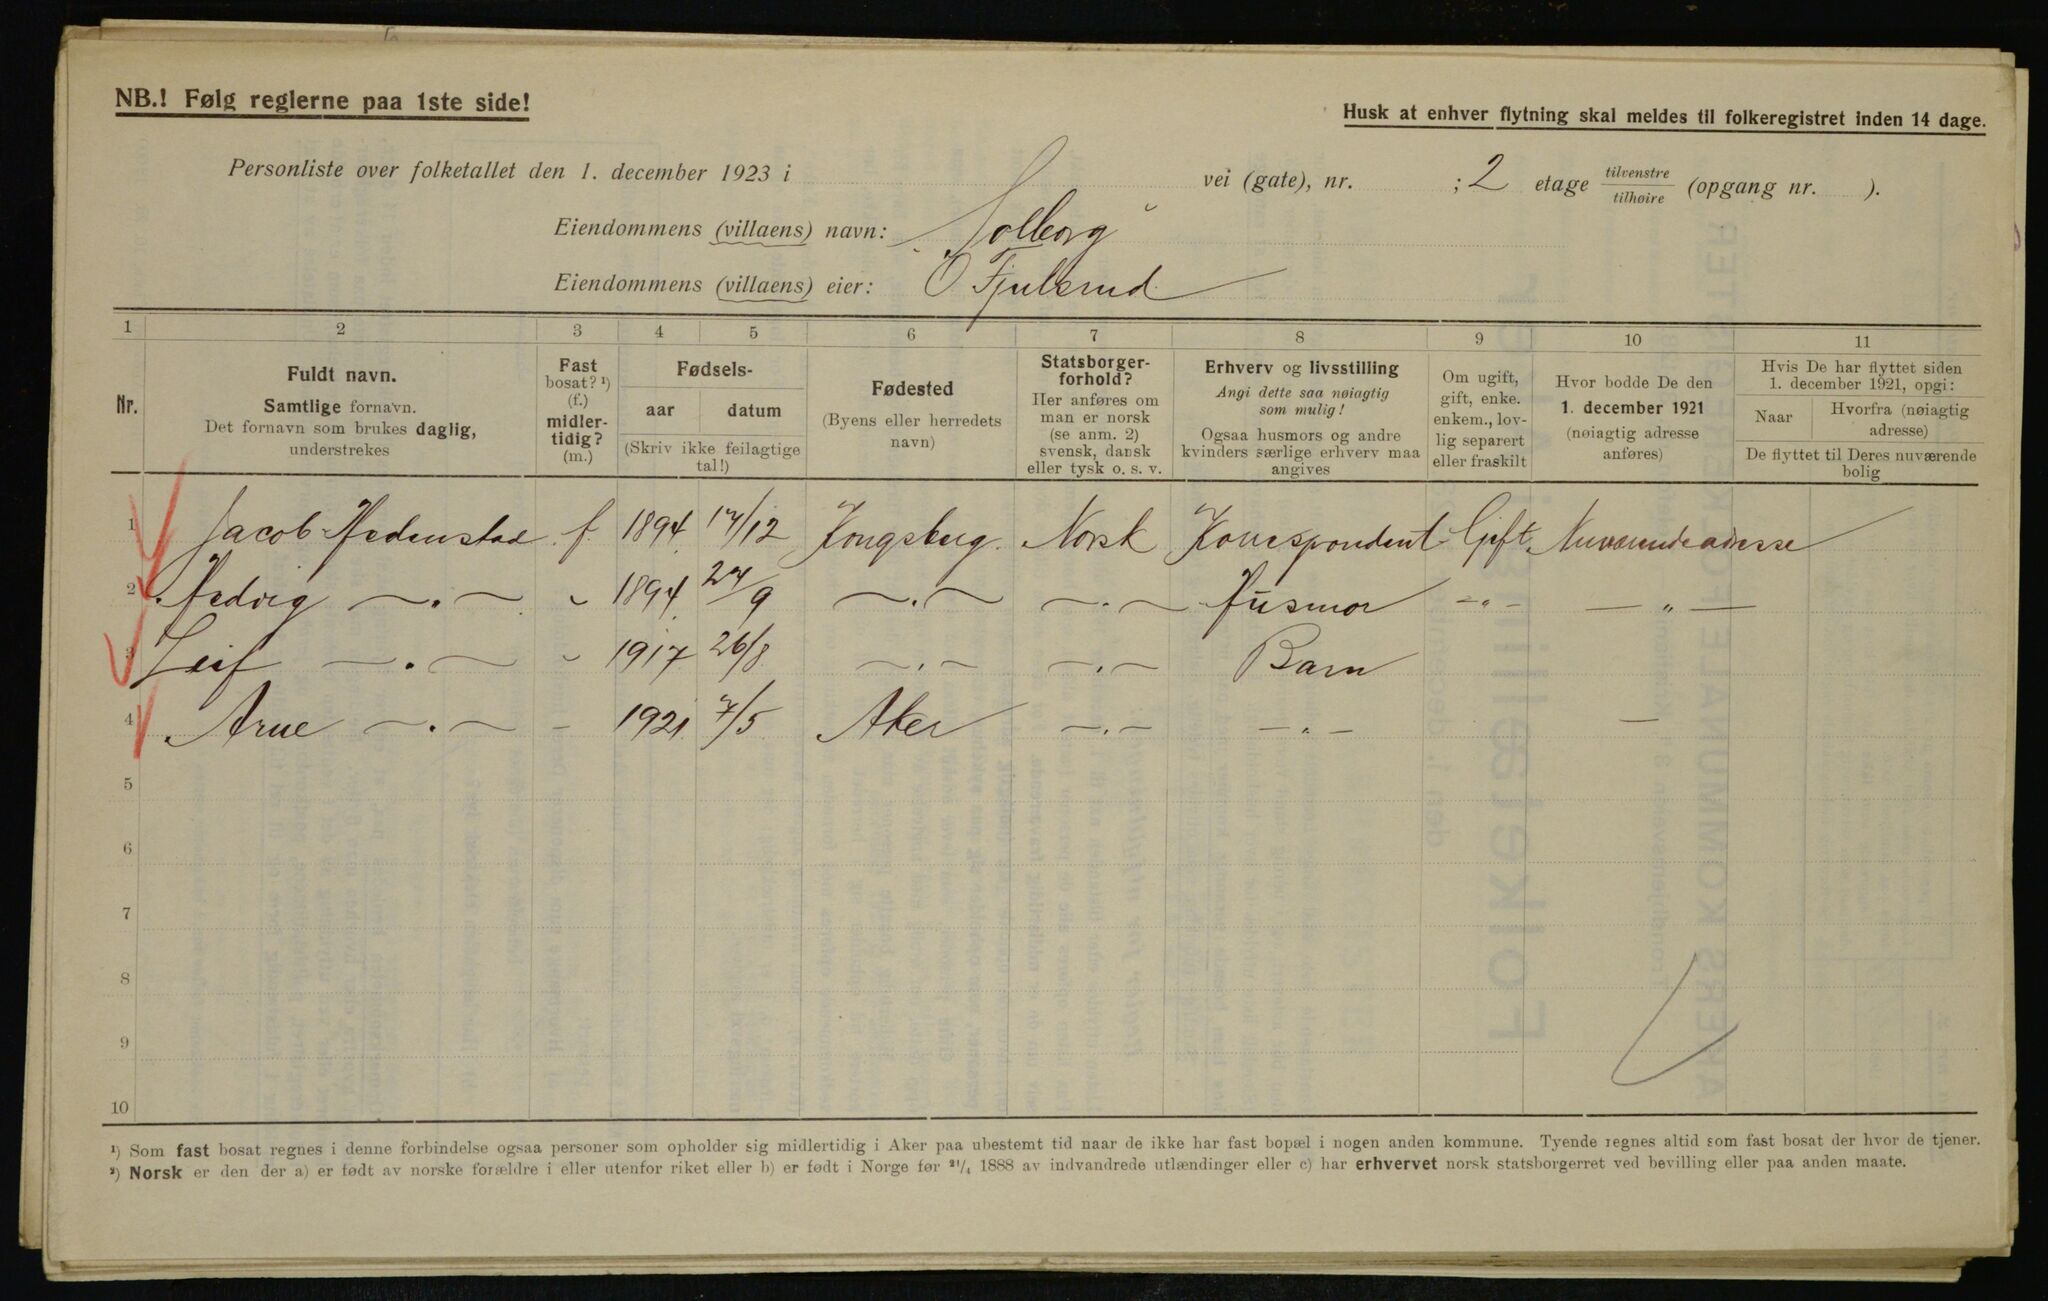 NB.! Følg reglerne paa 1ste side!
Husk at enhver flytning skal meldes til folkeregistret inden 14 dage.
Personliste over folketallet den 1. december 1923 i vei (gate), nr. ; 2 etage tilvenstre/tilhøire (opgang nr. ).
Eiendommens (villaens) navn: Solborg
Eiendommens (villaens) eier: O Fjulsrud
1 2 3 4 5 6 7 8 9 10 11
Nr.
Fuldt navn.
Samtlige fornavn.
Det fornavn som brukes daglig,
understrekes
Fast
bosat? ¹)
(f.)
midler-
tidig?
(m.)
Fødsels-
aar datum
(Skriv ikke feilagtige
tal!)
Fødested
(Byens eller herredets
navn)
Statsborger-
forhold?
Her anføres om
man er norsk
(se anm. 2)
svensk, dansk
eller tysk o. s. v.
Erhverv og livsstilling
Angi dette saa nøiagtig
som mulig!
Ogsaa husmors og andre
kvinders særlige erhverv maa
angives
Om ugift,
gift, enke.
enkem., lov-
lig separert
eller fraskilt
Hvor bodde De den
1. december 1921
(nøiagtig adresse
anføres)
Hvis De har flyttet siden
1. december 1921, opgi:
Naar Hvorfra (nøiagtig
adresse)
De flyttet til Deres nuværende
bolig
1 Jacob Hedenstad f. 1894 17/12 Kongsberg Norsk Korrespondent Gift Nuværende adresse
2 Hedvig —„— „ 1894 27/9 —„— —„— Husmor —„— —„—
3 Leif —„— „ 1917 26/8 —„— —„— Barn
4 Arne —„— – 1921 7/5 Aker —„— —„— —
5
6
7
8
9
10
¹) Som fast bosat regnes i denne forbindelse ogsaa personer som opholder sig midlertidig i Aker paa ubestemt tid naar de ikke har fast bopæl i nogen anden kommune. Tyende regnes altid som fast bosat der hvor de tjener.
²) Norsk er den der a) er født av norske forældre i eller utenfor riket eller b) er født i Norge før ²¹/₄ 1888 av indvandrede utlændinger eller c) har erhvervet norsk statsborgerret ved bevilling eller paa anden maate.